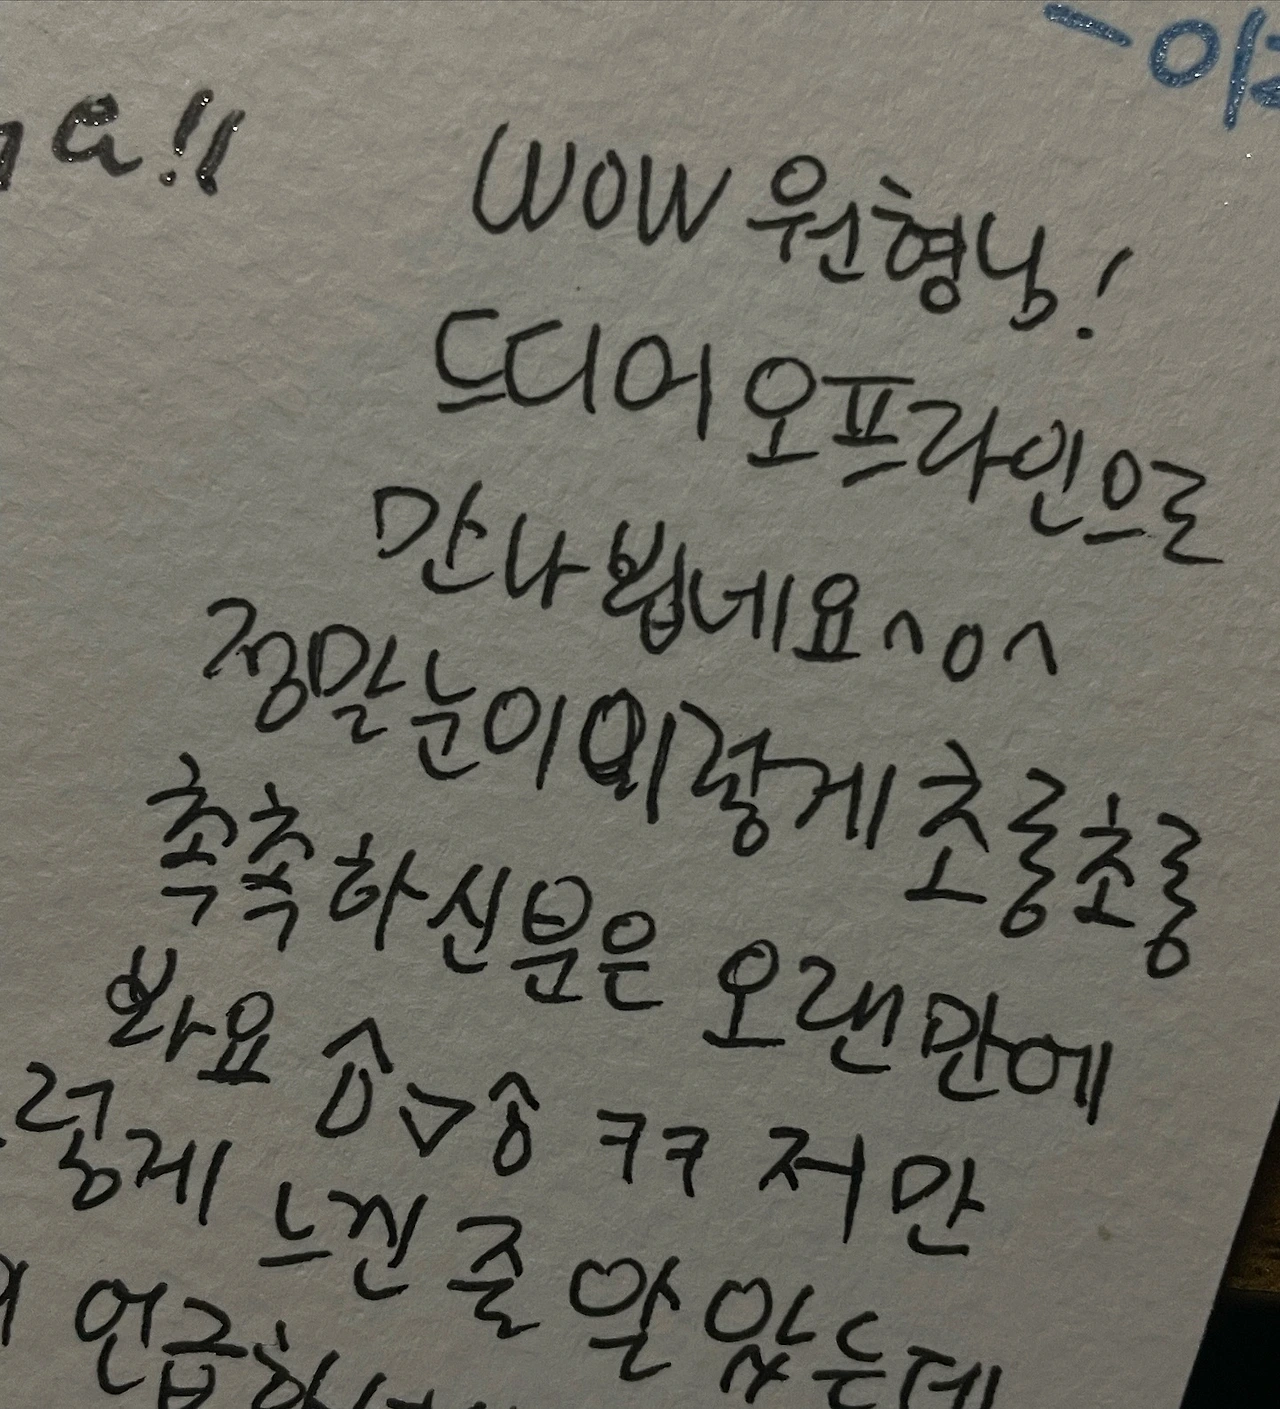 WOW 원형님!
드디어 오프라인으로
만나 뵙네요^o^
정말 눈이 이렇게 초롱초롱
촉촉하신 분은 오랜만에
봐요 ㅋㅋ 저만
그렇게 느낀 줄 알았는데
언급하